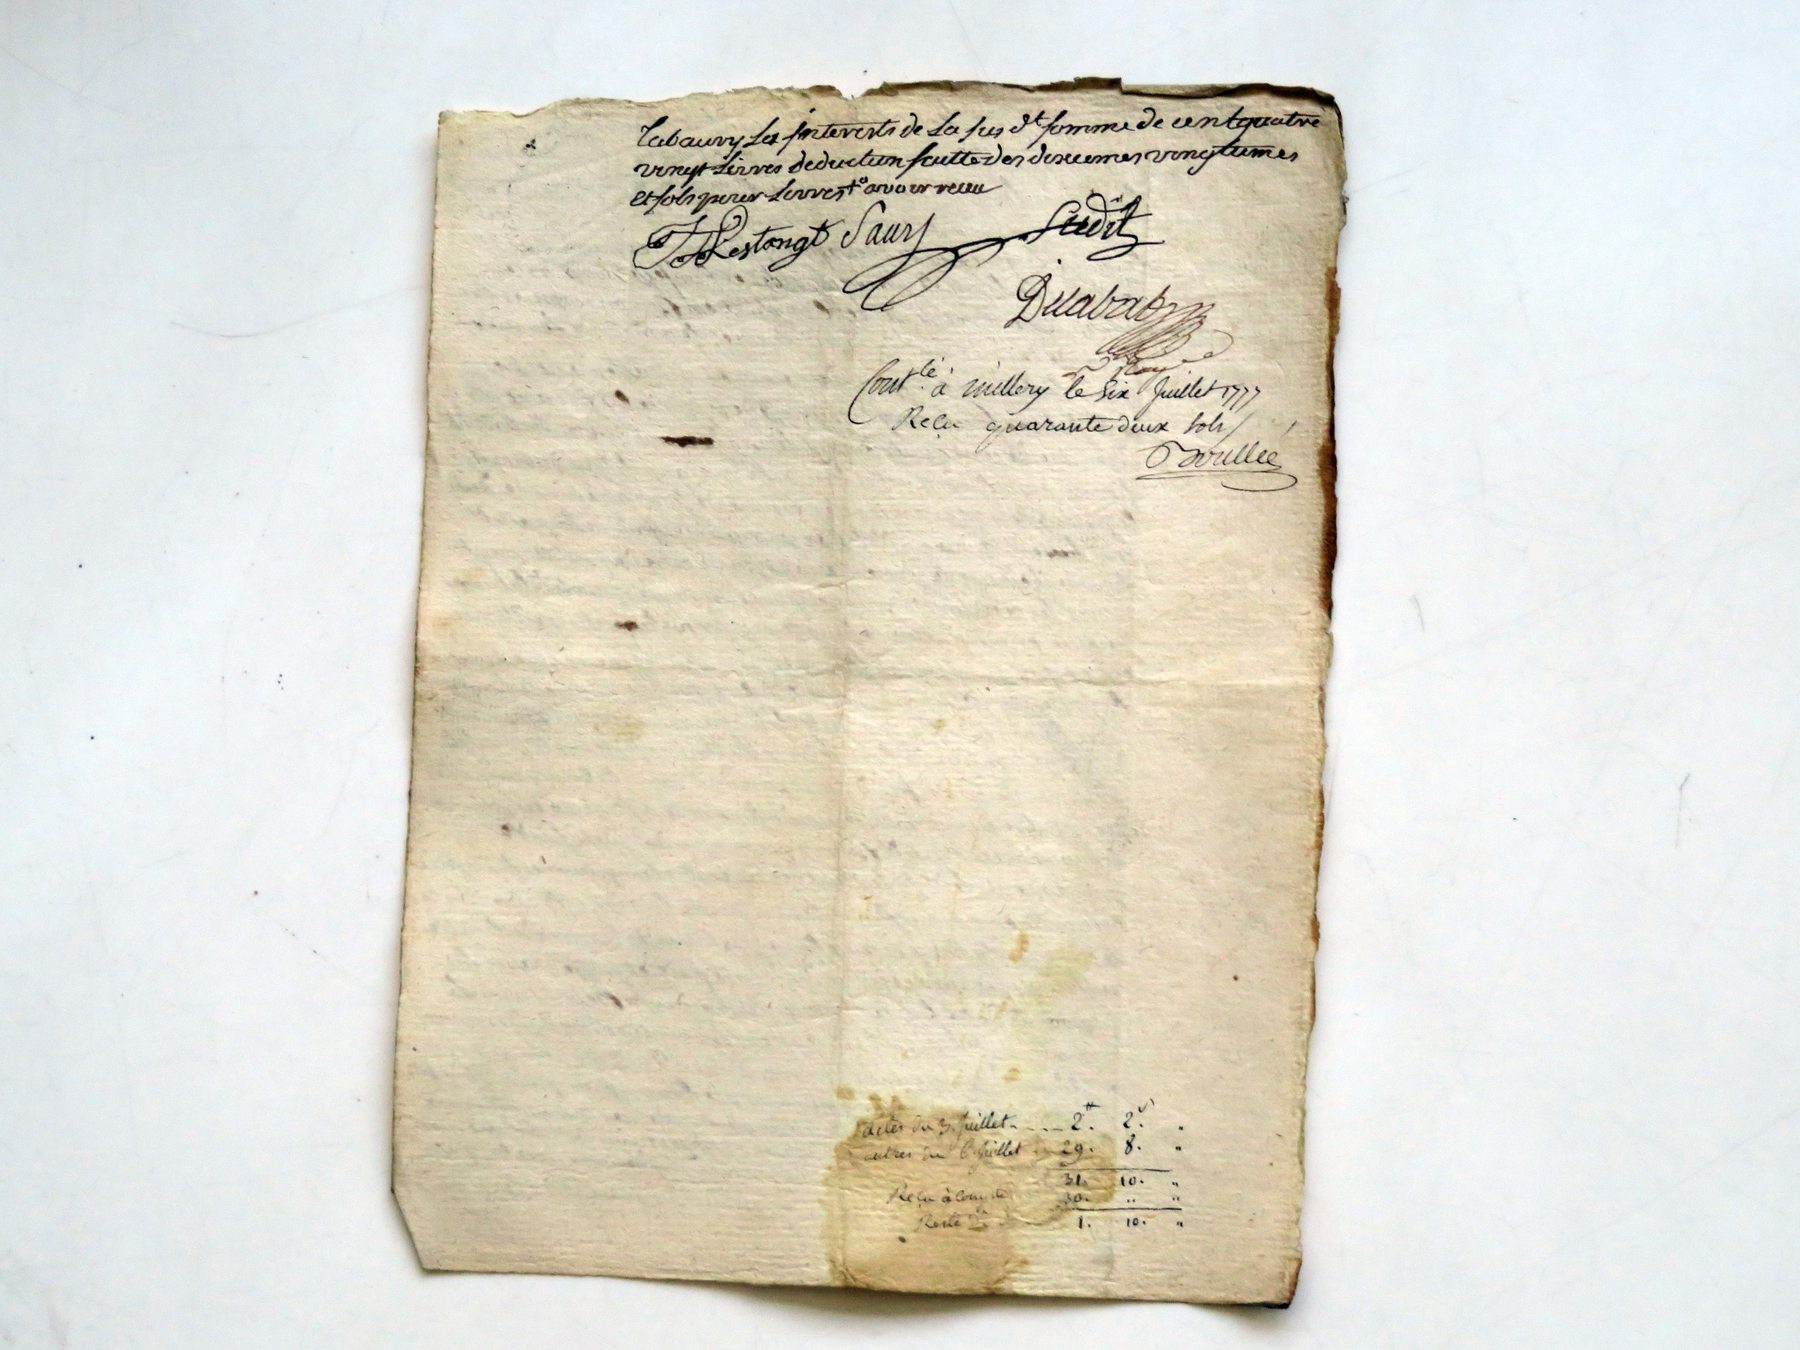 les jnterests de la sus dt somme de cent quatre
vingt Livres deduction faitte des dixiemes vingtiemes
et sols pour Livres
Lestangt Saury Sudit
Contlé à millery le Six Juillet 1777
Reçu quarante deux sols
actes du 3. Juillet 2.# 2.s "
autres du 6 Juillet 29. 8. "
31. 10. "
Reçu à compte 30. " "
Reste dû 1. 10. "